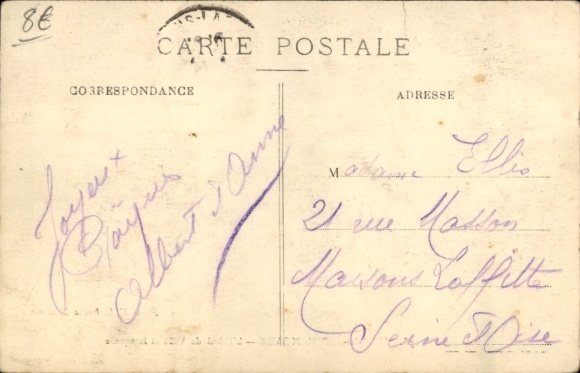 8€
CARTE POSTALE
CORRESPONDANCE
ADRESSE
Joyeux
Pâques
Albert & Anna
Madame Ellis
21 rue Masson
Maisons Laffitte
Seine & Oise